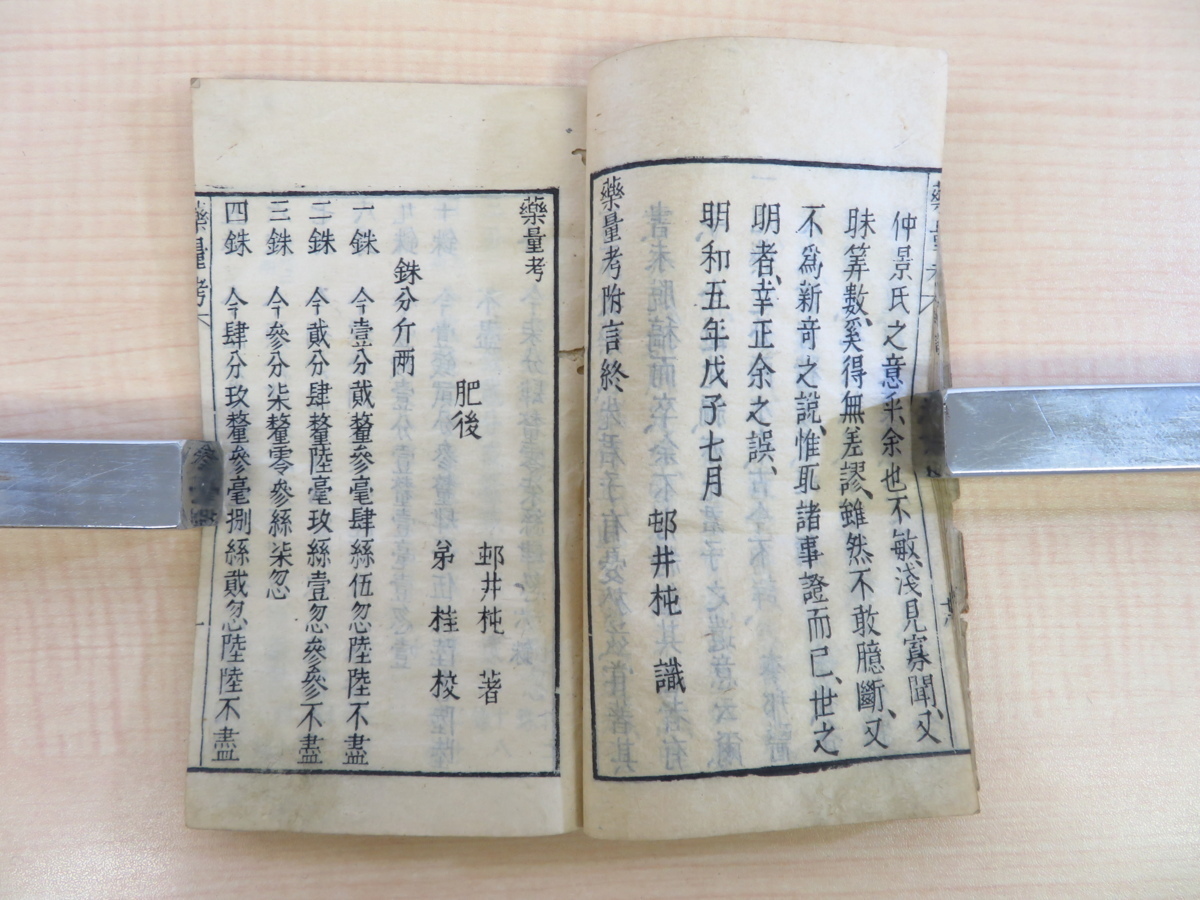 仲景氏之意乎余也不敏淺見寡聞、又
昧筭數、奚得無差謬、雖然不敢臆斷、又
不爲新竒之說、惟取諸事證而已、世之
明者、幸正余之誤、
明和五年戊子七月 邨井杶 識
藥量考附言終
藥量考
肥後 邨井杶 著
弟 桂 校
銖分斤兩
一銖 今壹分貳釐參毫肆絲伍忽陸陸不盡
二銖 今貳分肆釐陸毫玖絲壹忽參參不盡
三銖 今參分柒釐零參絲柒忽
四銖 今肆分玖釐參毫捌絲貳忽陸陸不盡
藥量考